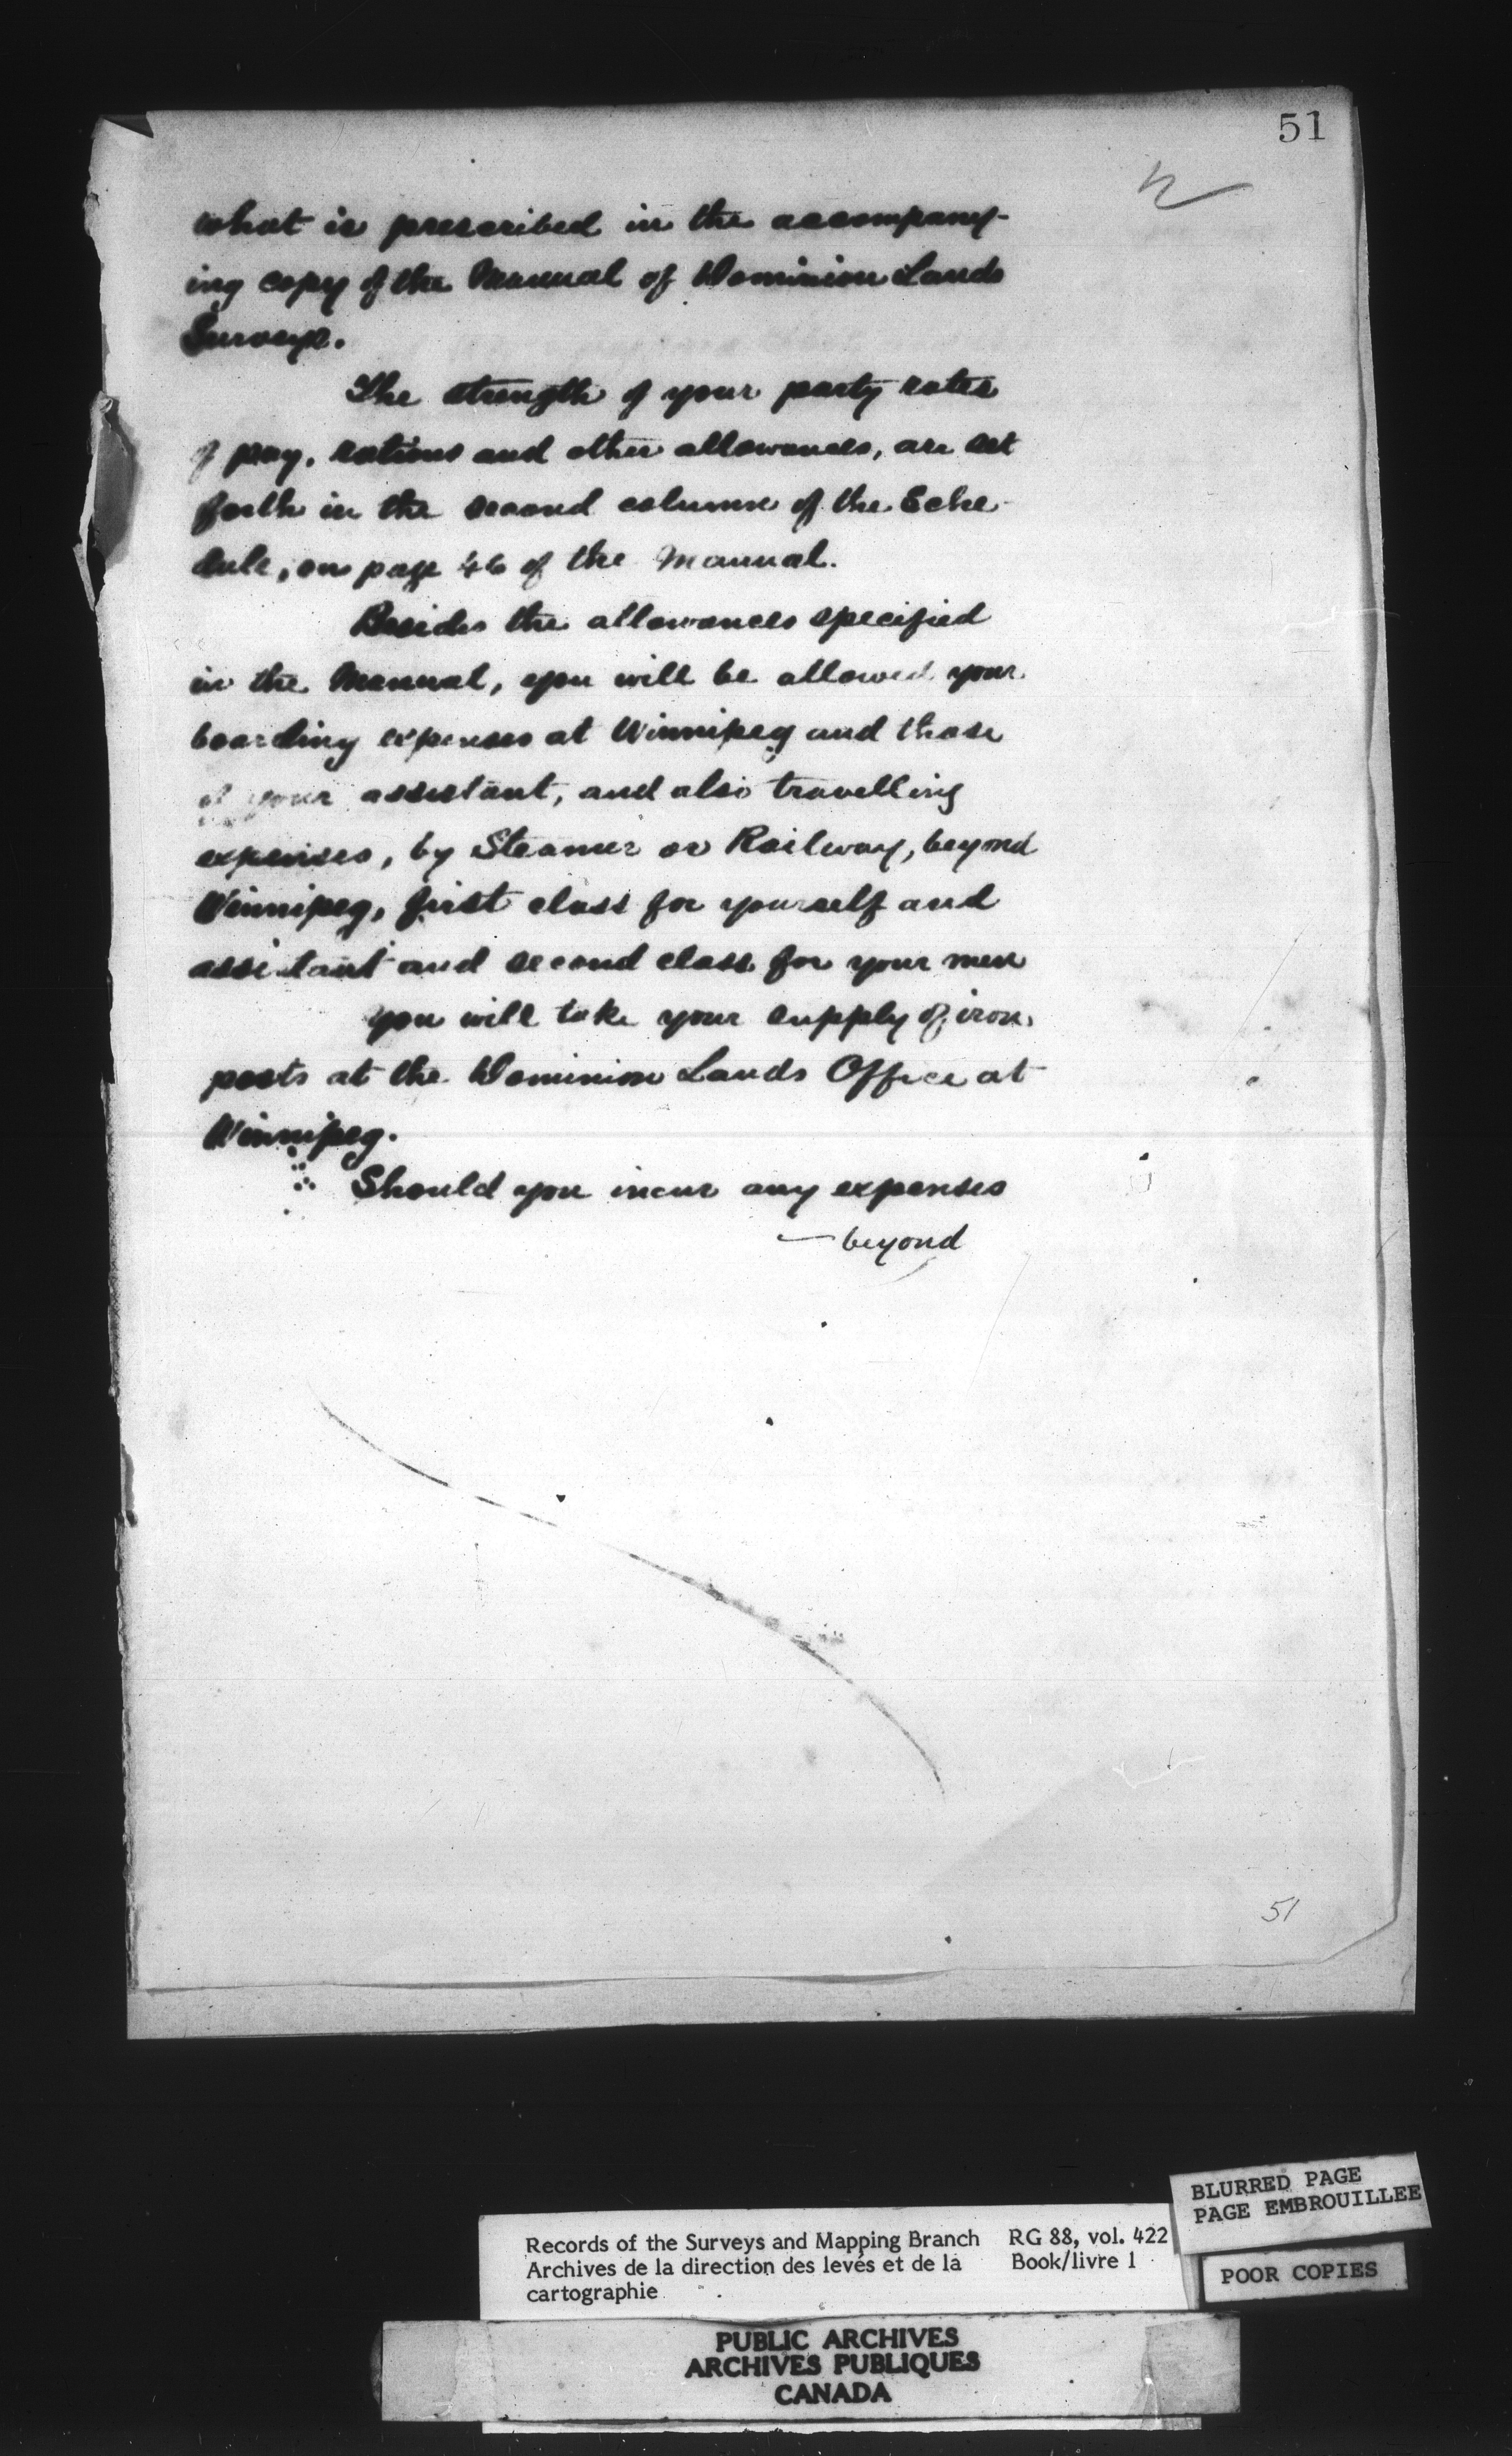 51
what is prescribed in the accompany-
ing copy of the Manual of Dominion Lands
Surveys.
The strength of your party rates
of pay, rations and other allowances, are set
forth in the second column of the Sche-
dule, on page 46 of the Manual.
Besides the allowances specified
in the Manual, you will be allowed your
boarding expenses at Winnipeg and those
of your assistant, and also travelling
expenses, by Steamer or Railway, beyond
Winnipeg, first class for yourself and
assistant and second class for your men
You will take your supply of iron
posts at the Dominion Lands Office at
Winnipeg.
Should you incur any expenses
— beyond
51
BLURRED PAGE
PAGE EMBROUILLEE
Records of the Surveys and Mapping Branch RG 88, vol. 422
Archives de la direction des levés et de la Book/livre 1
cartographie
POOR COPIES
PUBLIC ARCHIVES
ARCHIVES PUBLIQUES
CANADA